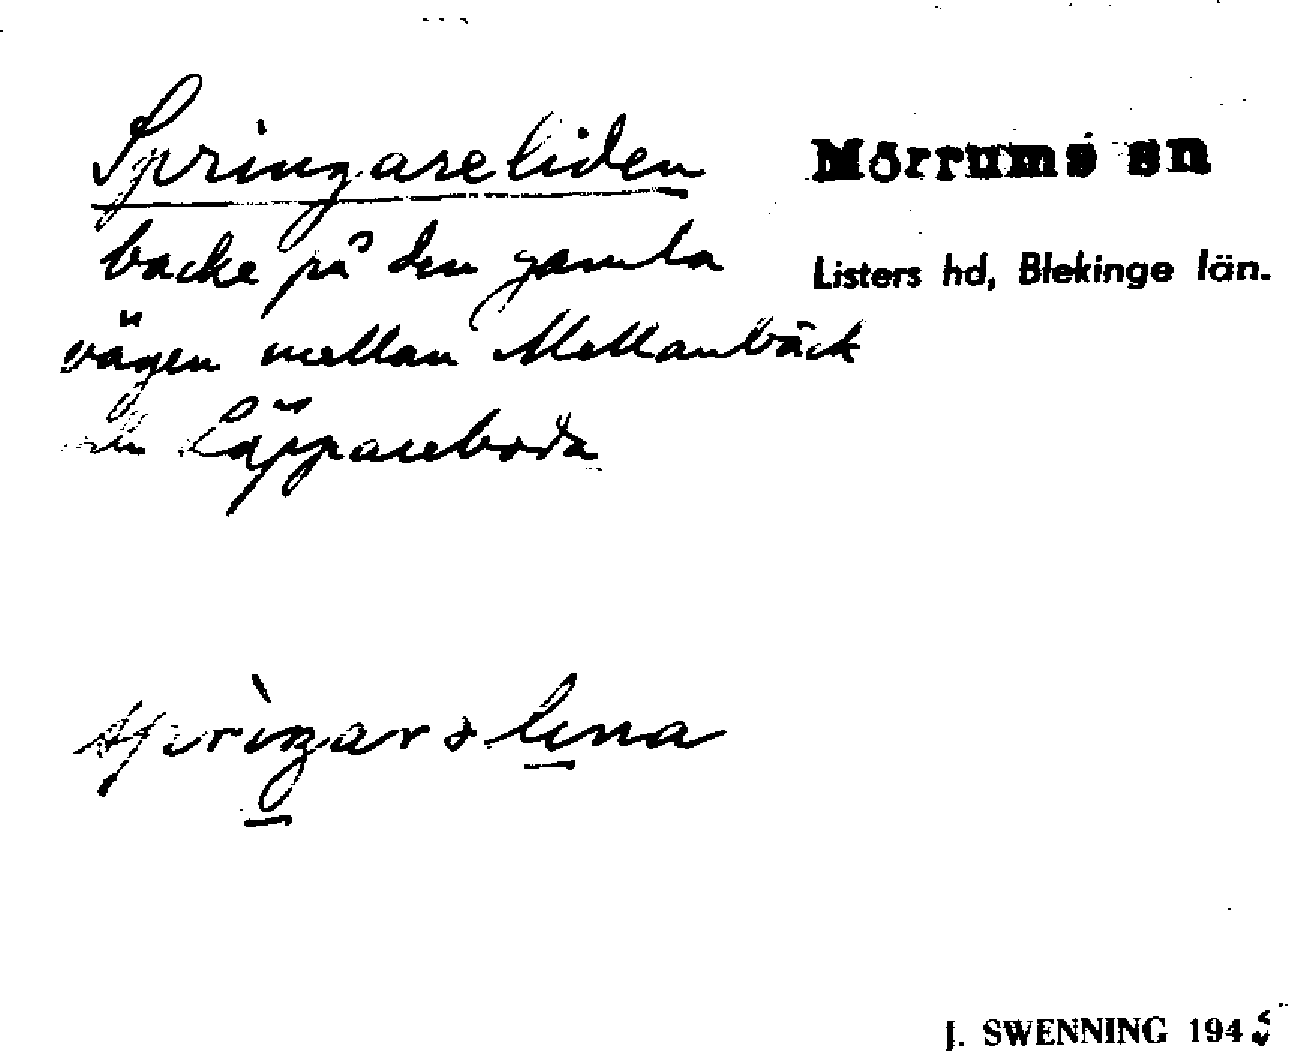 Springareliden
Mörrums sn
backe på den gamla
Listers hd, Blekinge län.
vägen mellan Mellanbäck
och Läppareboda
J. SWENNING 1945